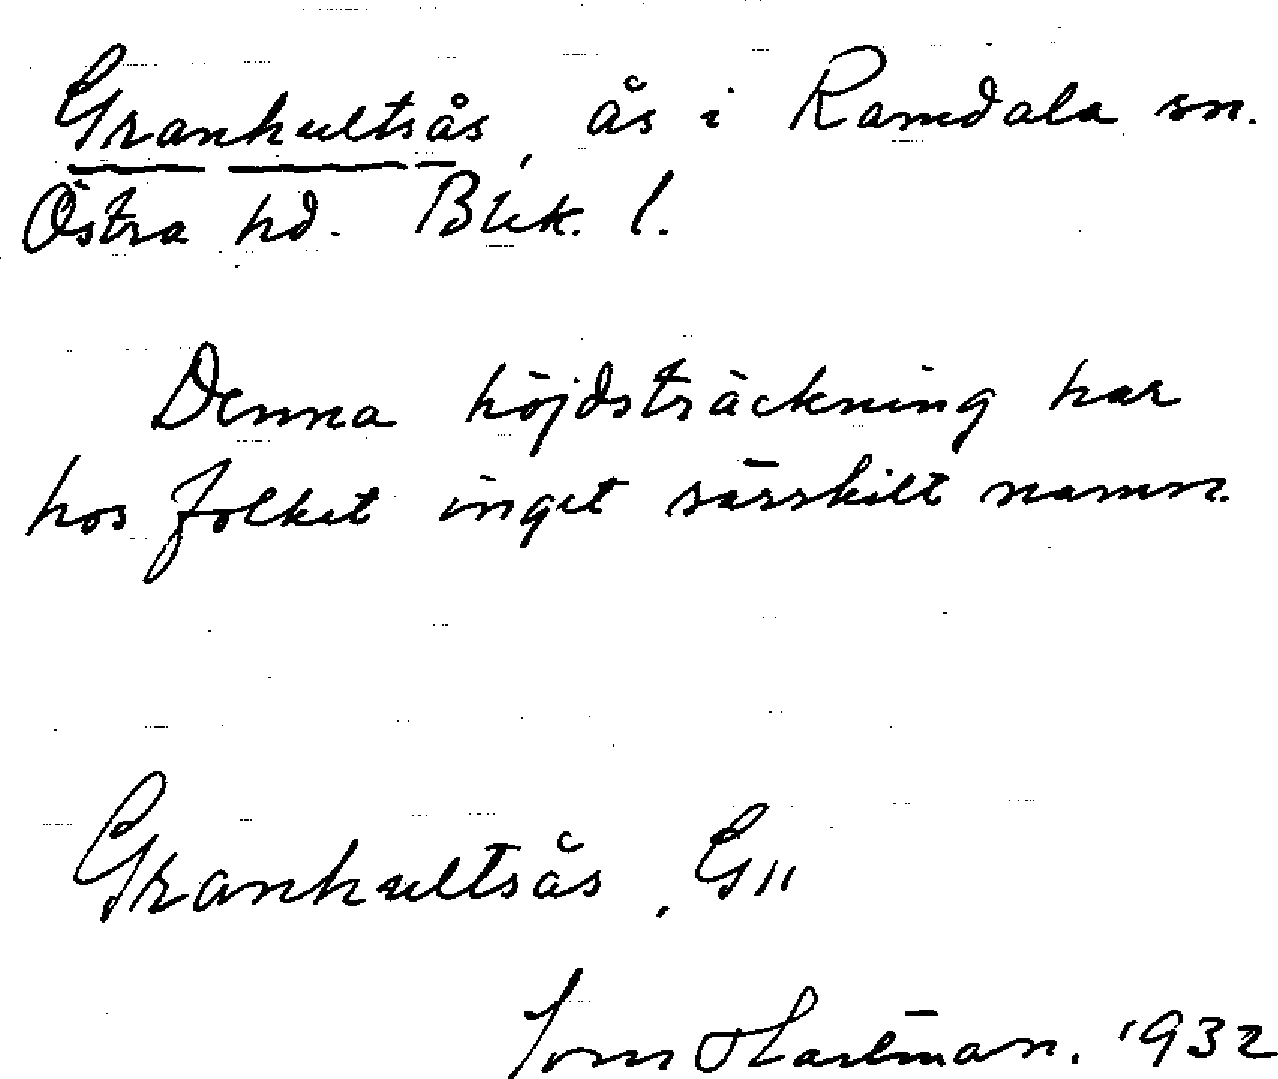 Granhultsås, ås i Ramdala sn.
Östra hd. Blek. l.
Denna höjdsträckning har
hos folket inget särskilt namn.
Granhultsås, G11
Tom Hartman. 1932